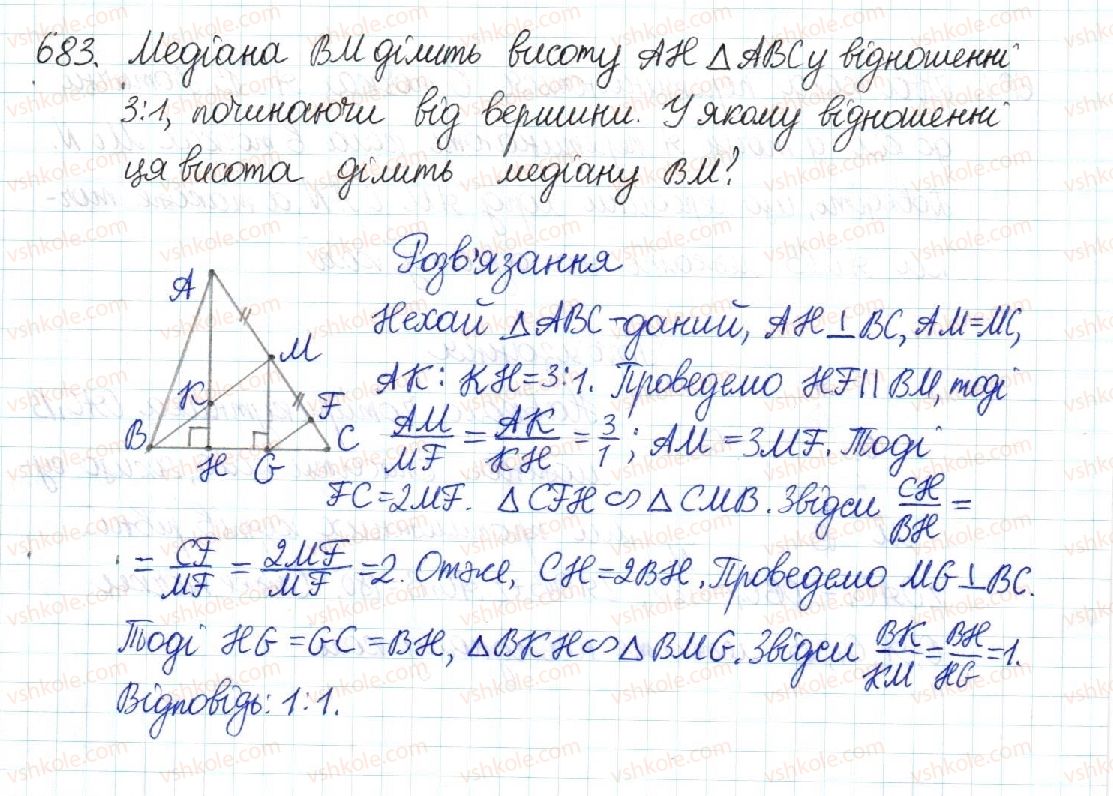 683. Медіана BM ділить висоту AH △ABC у відношенні
3:1, починаючи від вершини. У якому відношенні
ця висота ділить медіану BM?
Розв'язання
Нехай △ABC - даний, AH⊥BC, AM=MC,
AK : KH=3:1. Проведемо HF∥BM, тоді
AM/MF = AK/KH = 3/1; AM = 3MF. Тоді
FC=2MF. △CFH ∽ △CMB. Звідси CH/BH =
= CF/MF = 2MF/MF = 2. Отже, CH=2BH. Проведемо MG⊥BC.
Тоді HG = GC = BH, △BKH ∽ △BMG. Звідси BK/KM = BH/HG = 1.
Відповідь: 1:1.
A
M
K
F
B
H
G
C
vshkole.com